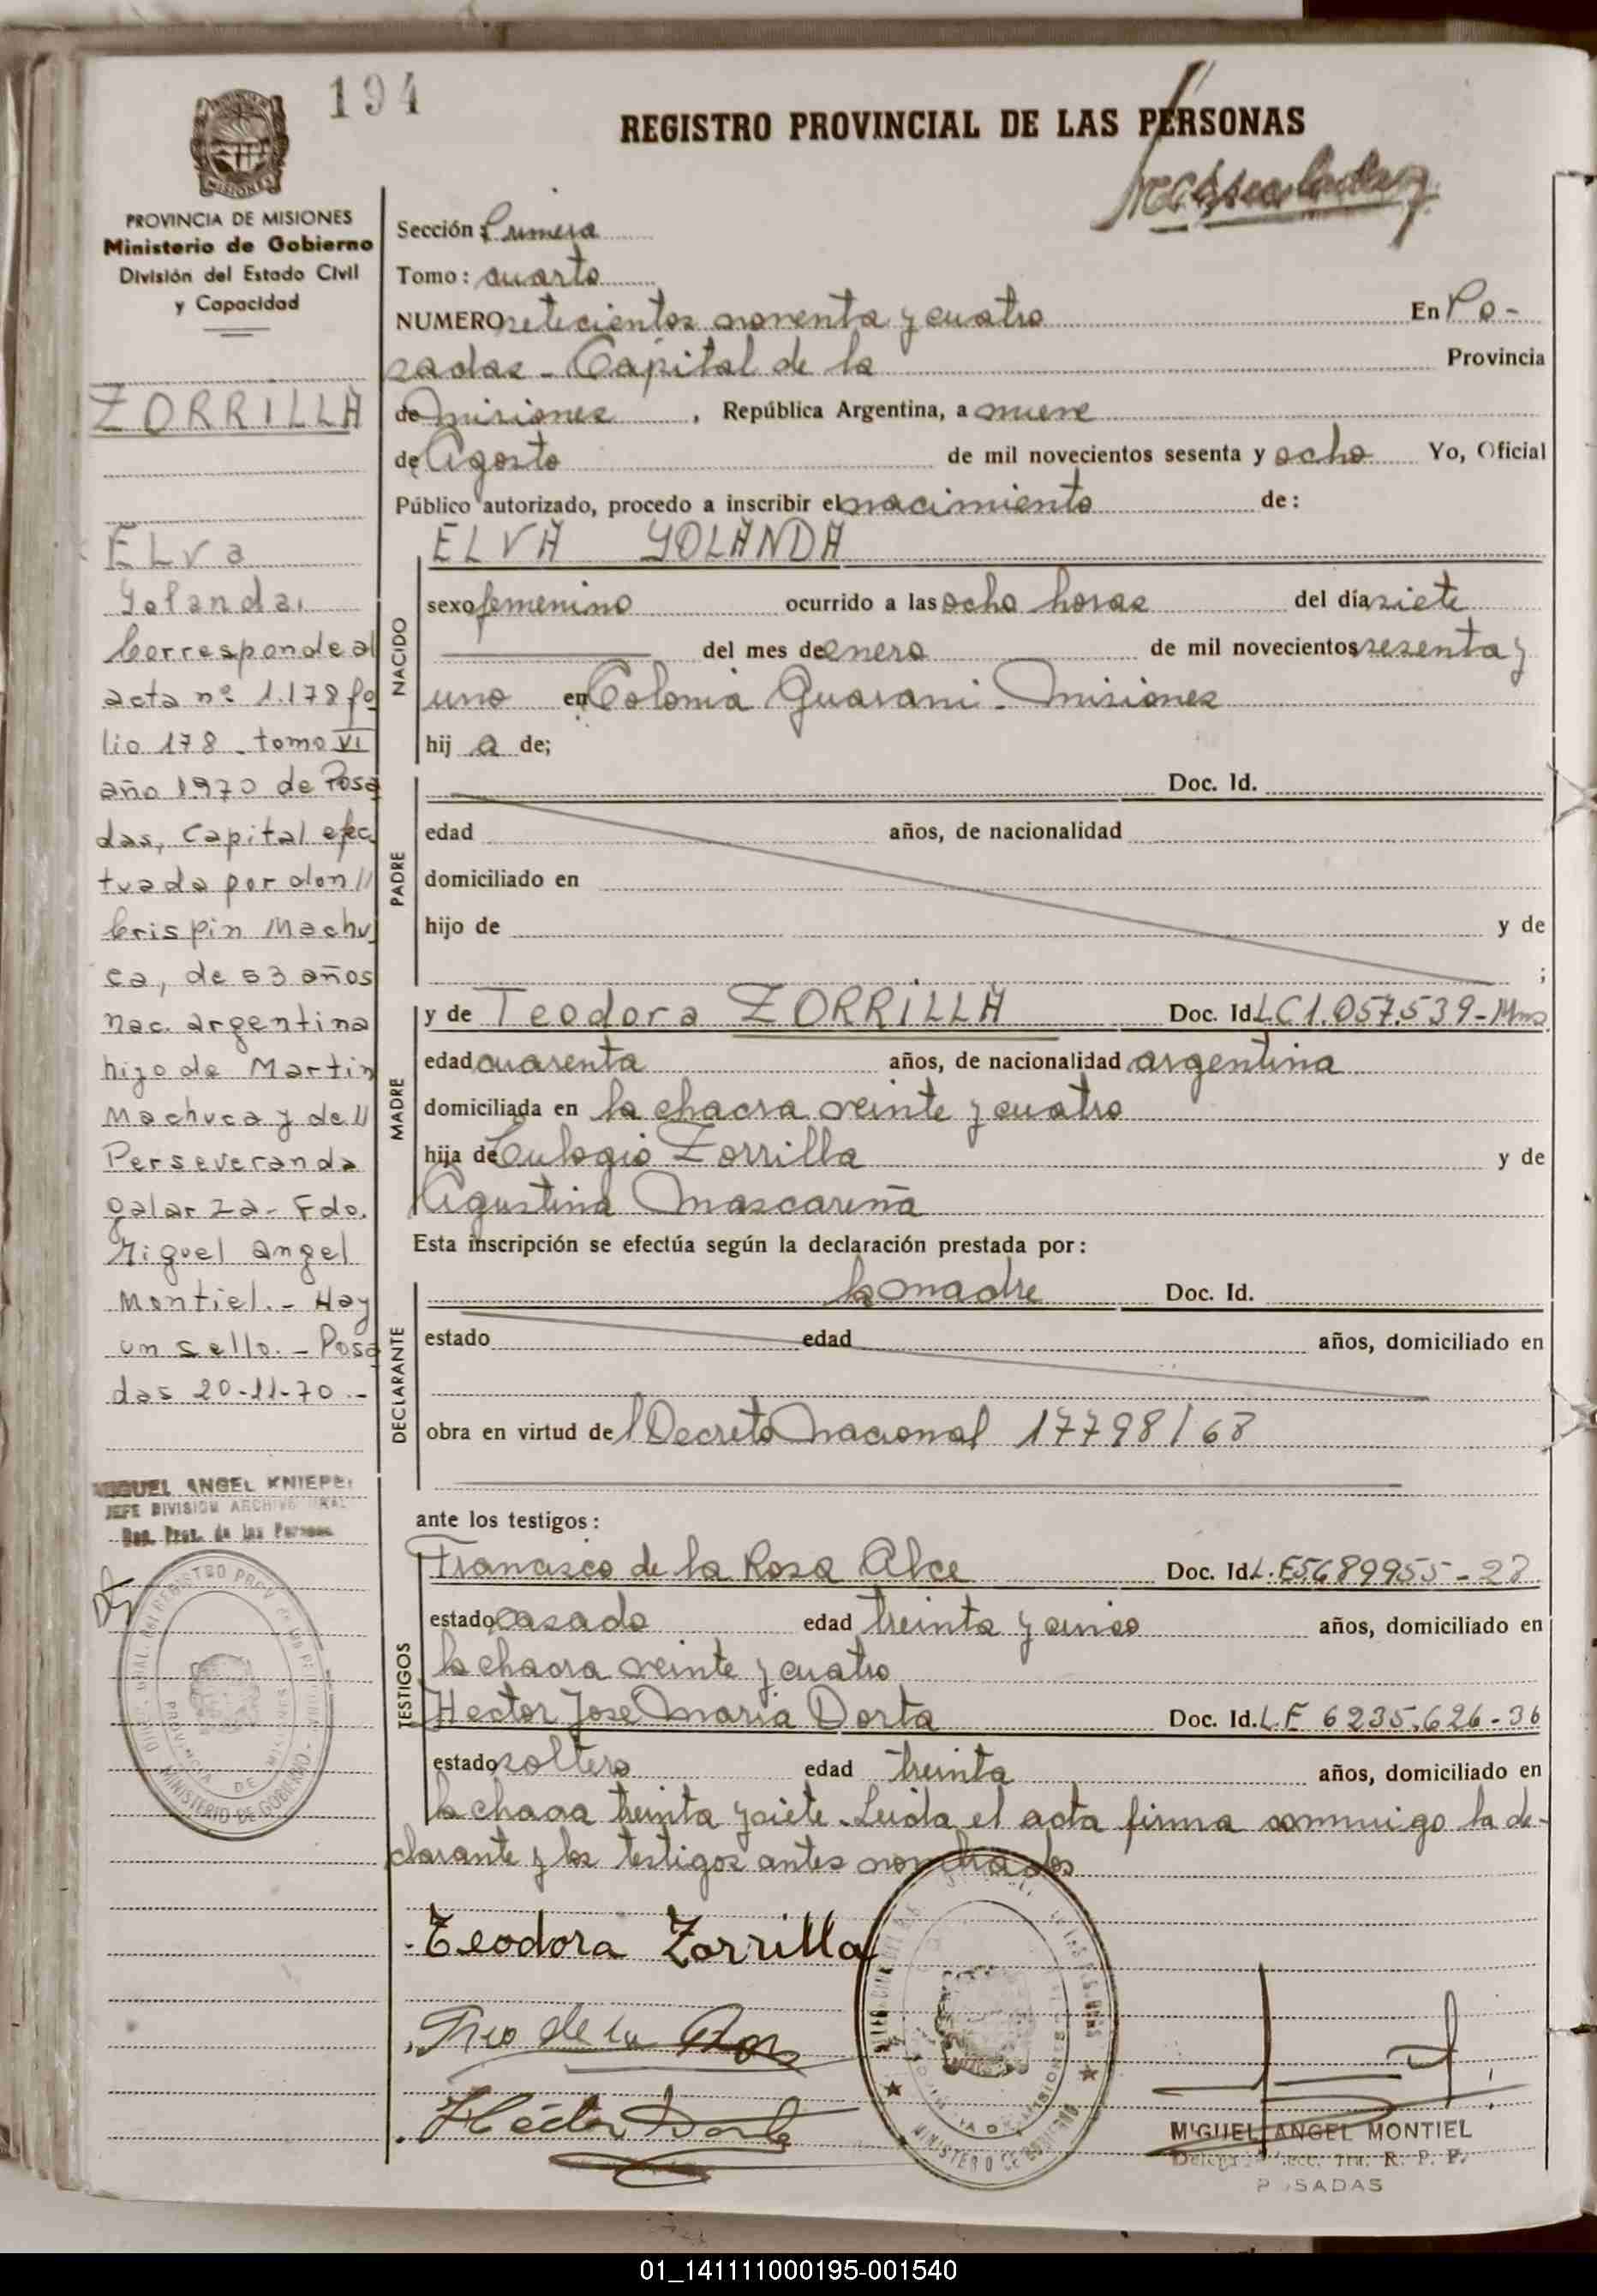 194
REGISTRO PROVINCIAL DE LAS PERSONAS
PROVINCIA DE MISIONES
Ministerio de Gobierno
División del Estado Civil
y Capacidad
ZORRILLA
Elva
Yolanda.
Corresponde al
acta nº 1.178 fo
lio 178 - tomo VI
año 1970 de Posa
das, Capital efec
tuada por don //
Crispin Machu
ca, de 53 años
nac. argentina
hijo de Martin
Machuca y de //
Perseveranda
galarza - Fdo.
Miguel angel
Montiel. - Hay
un sello. - Posa
das 20-11-70 .-
MIGUEL ANGEL KNIEPE
JEFE DIVISION ARCHIVO GRAL
Reg. Prov. de las Personas
Sección: Primera
Tomo: cuarto
NUMERO setecientos noventa y cuatro En Po-
sadas - Capital de la Provincia
de Misiones, República Argentina, a nueve
de Agosto de mil novecientos sesenta y ocho Yo, Oficial
Público autorizado, procedo a inscribir el nacimiento de:
ELVA YOLANDA
NACIDO
sexo femenino ocurrido a las ocho horas del día siete
del mes de enero de mil novecientos sesenta y
uno en Colonia Guarani - Misiones
hij a de;
PADRE
Doc. Id.
edad años, de nacionalidad
domiciliado en
hijo de y de
;
MADRE
y de Teodora ZORRILLA Doc. Id. L.C 1.057.539 - Mns
edad cuarenta años, de nacionalidad argentina
domiciliada en la chacra veinte y cuatro
hija de Eulogio Zorrilla y de
Agustina Mascareña
Esta inscripción se efectúa según la declaración prestada por:
DECLARANTE
la madre Doc. Id.
estado edad años, domiciliado en
obra en virtud del Decreto Nacional 17798/68
ante los testigos:
TESTIGOS
Francisco de la Rosa Alce Doc. Id. L.E 5689955 - 28
estado casado edad treinta y cinco años, domiciliado en
la chacra veinte y cuatro
Hector Jose Maria Dorta Doc. Id. L.E 6235.626 - 36
estado soltero edad treinta años, domiciliado en
la chacra treinta y siete. Leida el acta firma conmigo la de-
clarante y los testigos antes nombrados
Teodora Zorrilla
Fco de la Rosa
Héctor Dorta
PROVINCIA DE MISIONES
MINISTERIO DE GOBIERNO
MIGUEL ANGEL MONTIEL
R. P. P.
POSADAS
01_141111000195-001540